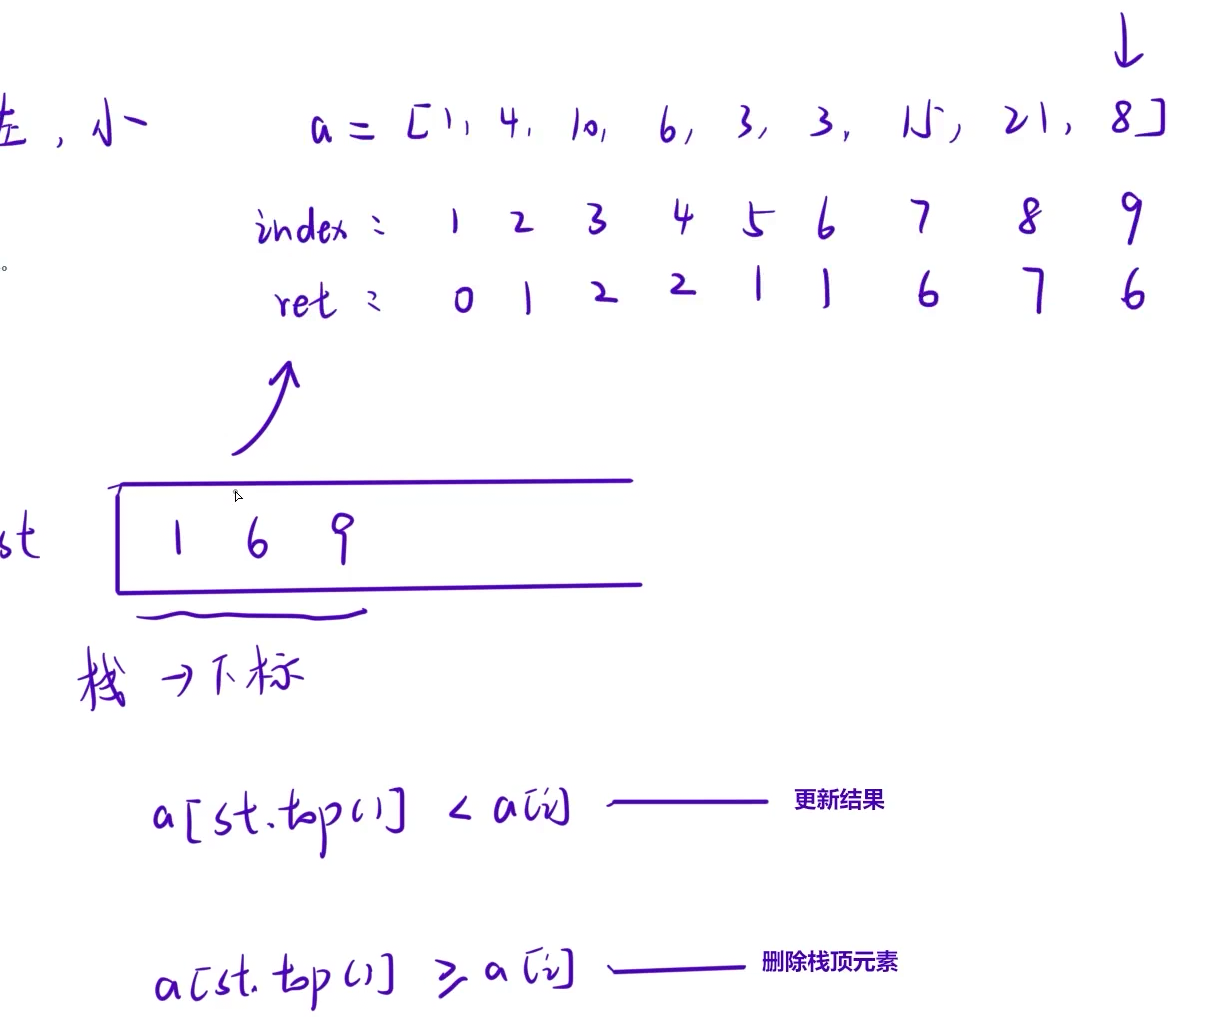 左，小 a = [1, 4, 10, 6, 3, 3, 15, 21, 8]
index: 1 2 3 4 5 6 7 8 9
。
ret: 0 1 2 2 1 1 6 7 6
st 1 6 9
栈 → 下标
a[st.top()] < a[i] 更新结果
a[st.top()] ≥ a[i] 删除栈顶元素